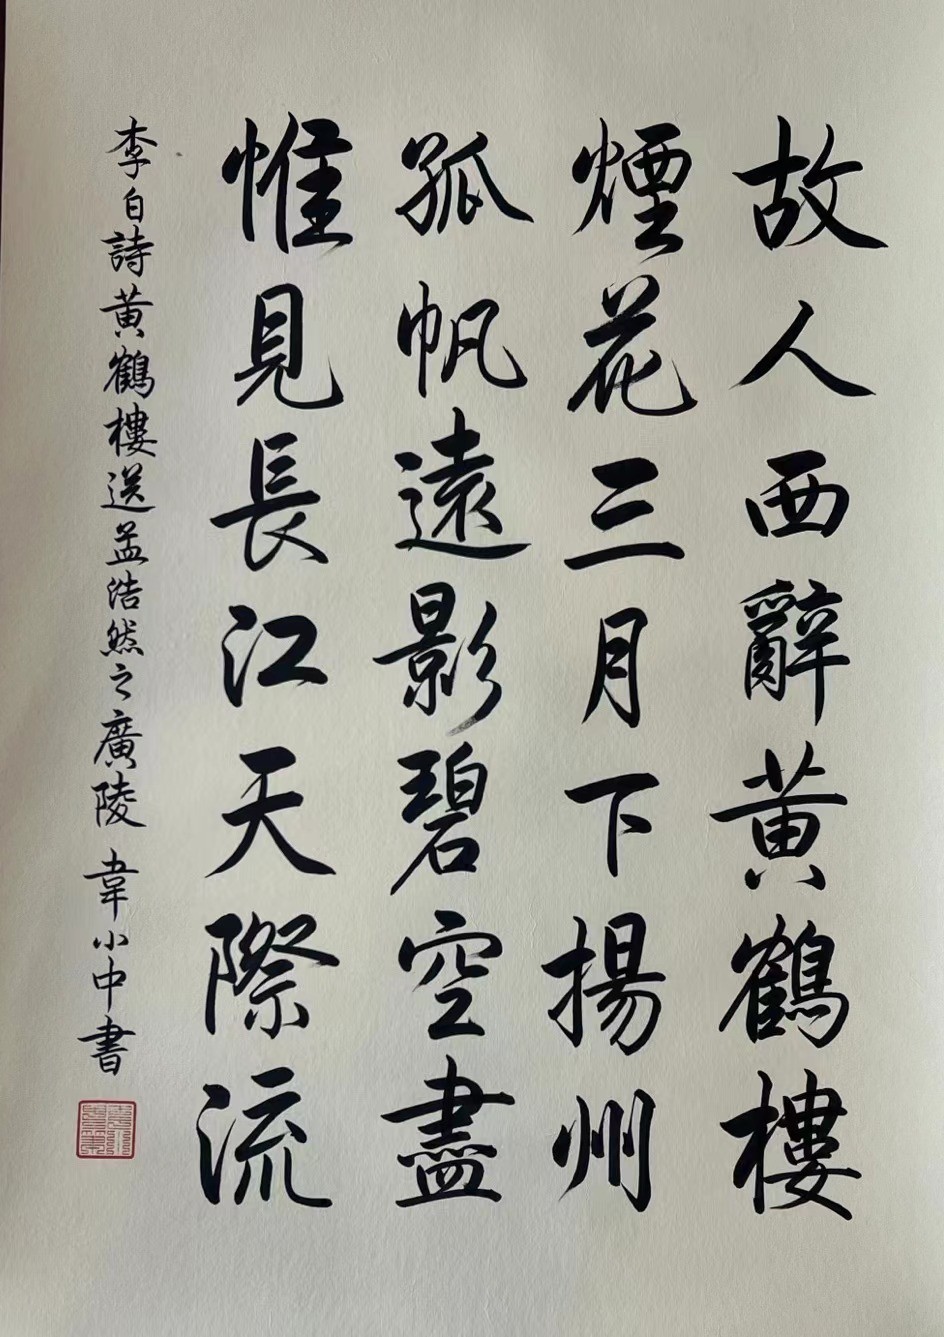 故人西辭黄鶴樓
煙花三月下揚州
孤帆遠影碧空盡
惟見長江天際流
李白詩黄鶴樓送孟浩然之廣陵 韋小中書